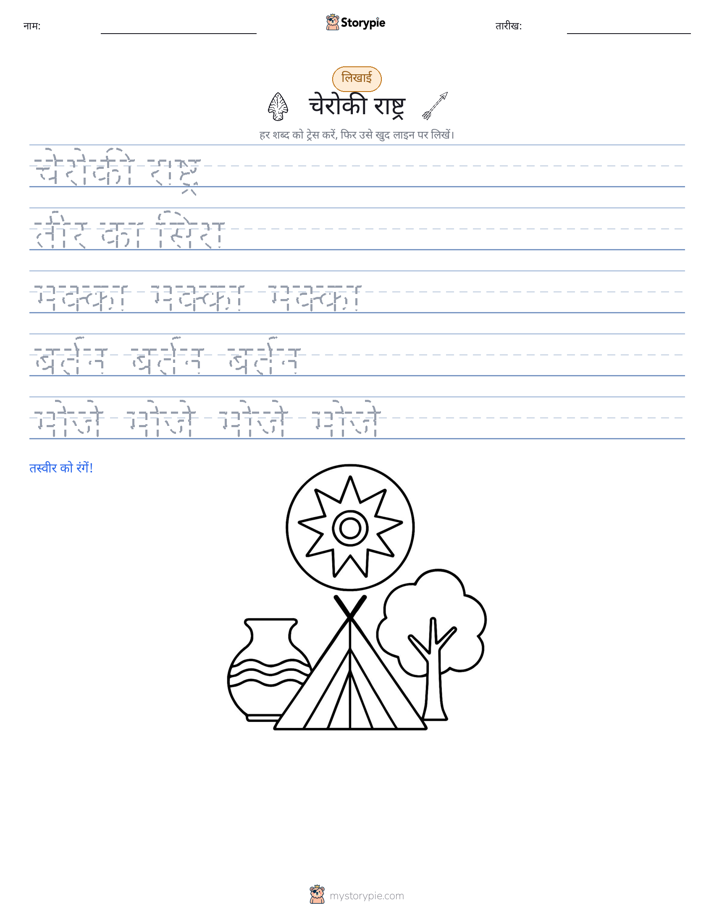 नाम:
Storypie
तारीख:
लिखाई
चेरोकी राष्ट्र
हर शब्द को ट्रेस करें, फिर उसे खुद लाइन पर लिखें।
चेरोकी राष्ट्र
तीर का सिरा
मक्का मक्का मक्का
बर्तन बर्तन बर्तन
मोजे मोजे मोजे मोजे
तस्वीर को रंगें!
mystorypie.com